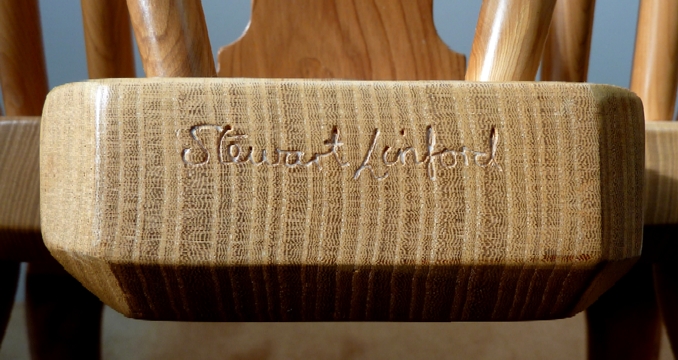 Stewart Linford